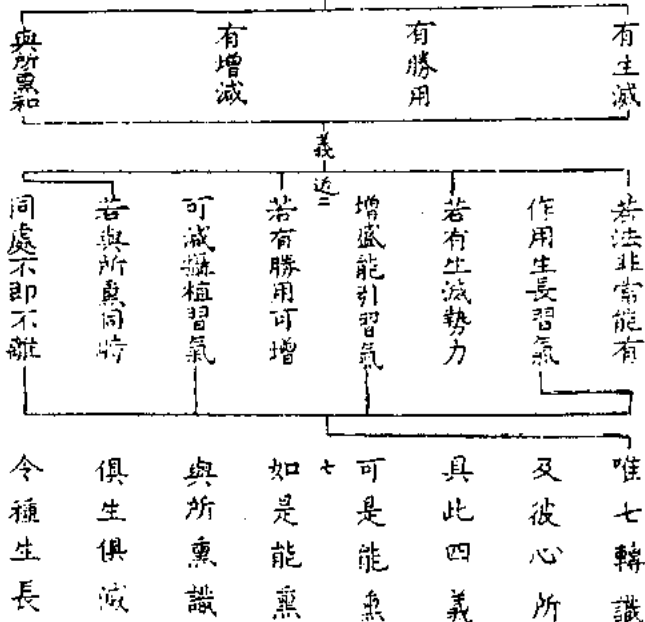 有生滅
有勝用
有增減
與所熏和
義
近二
若法非常能有
作用生長習氣
若有生滅勢力
增盛能引習氣
若有勝用可增
可減攝植習氣
若與所熏同時
同處不即不離
唯七轉識
及彼心所
具此四義
可是能熏
七
如是能熏
與所熏識
俱生俱滅
令種生長